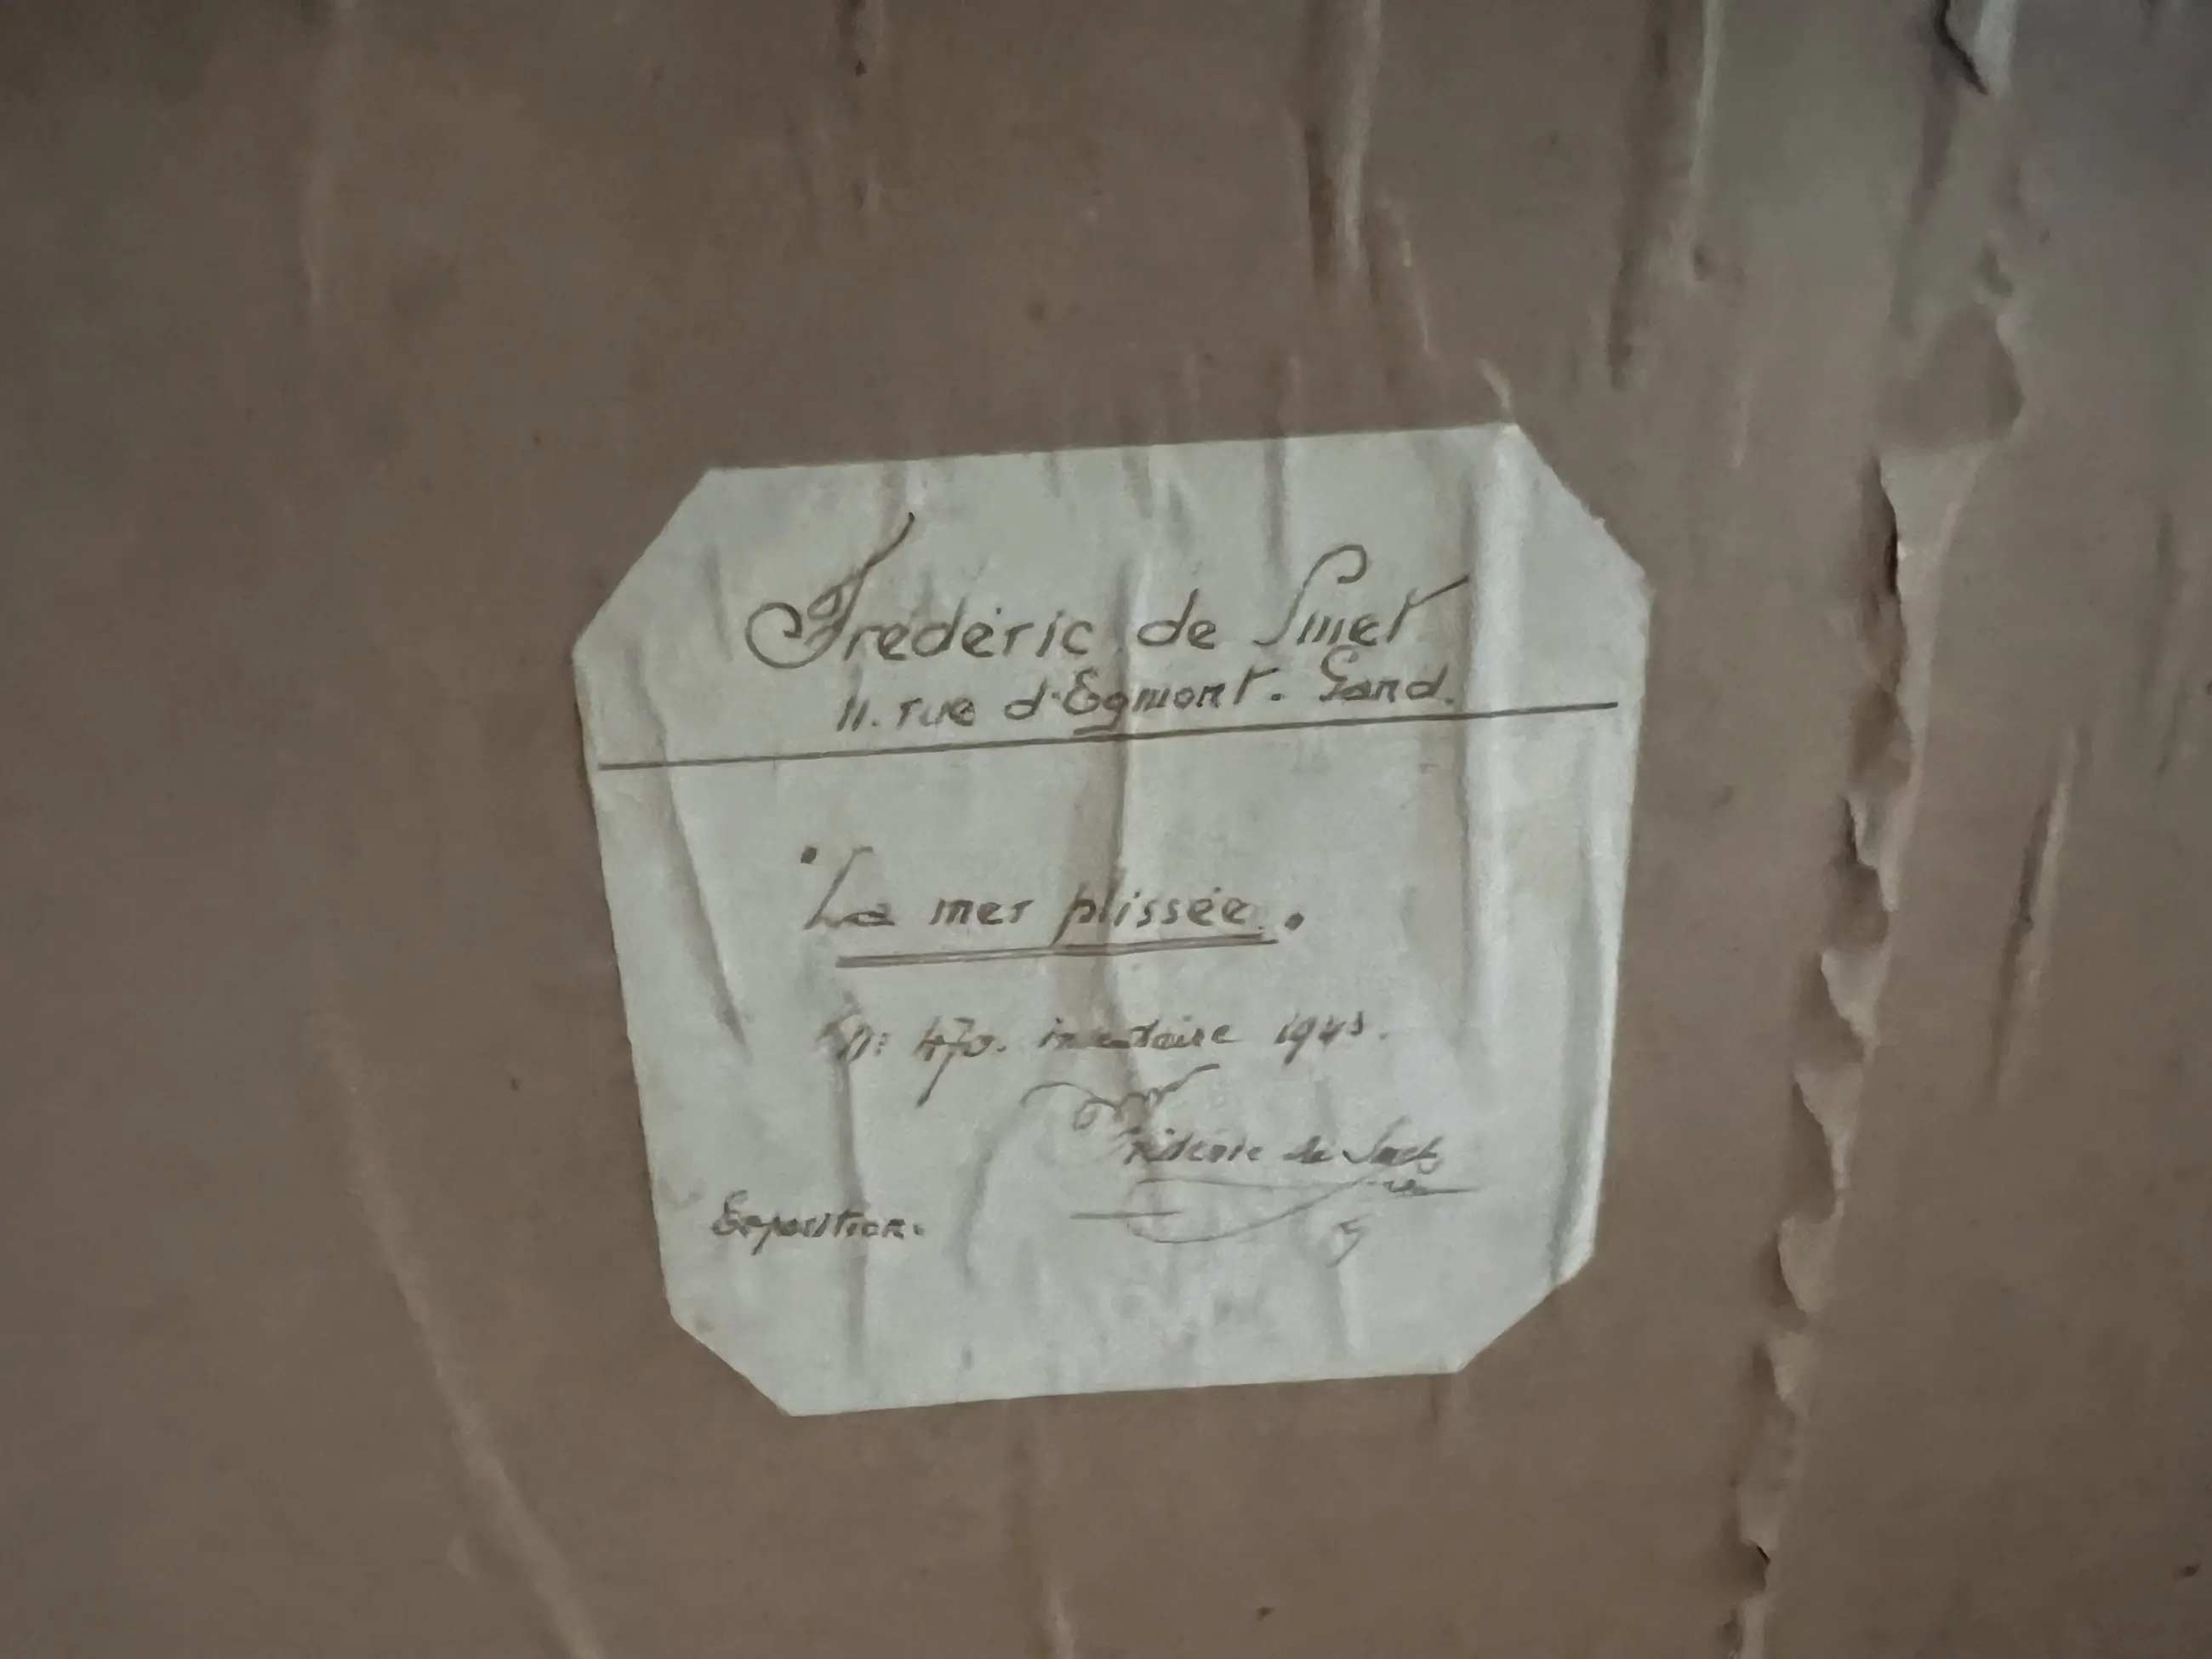 Frédéric de Smet
11. rue d'Egmont. Gand.
"La mer plissée".
N: 470. inventaire
Frédéric de Smet
Exposition.